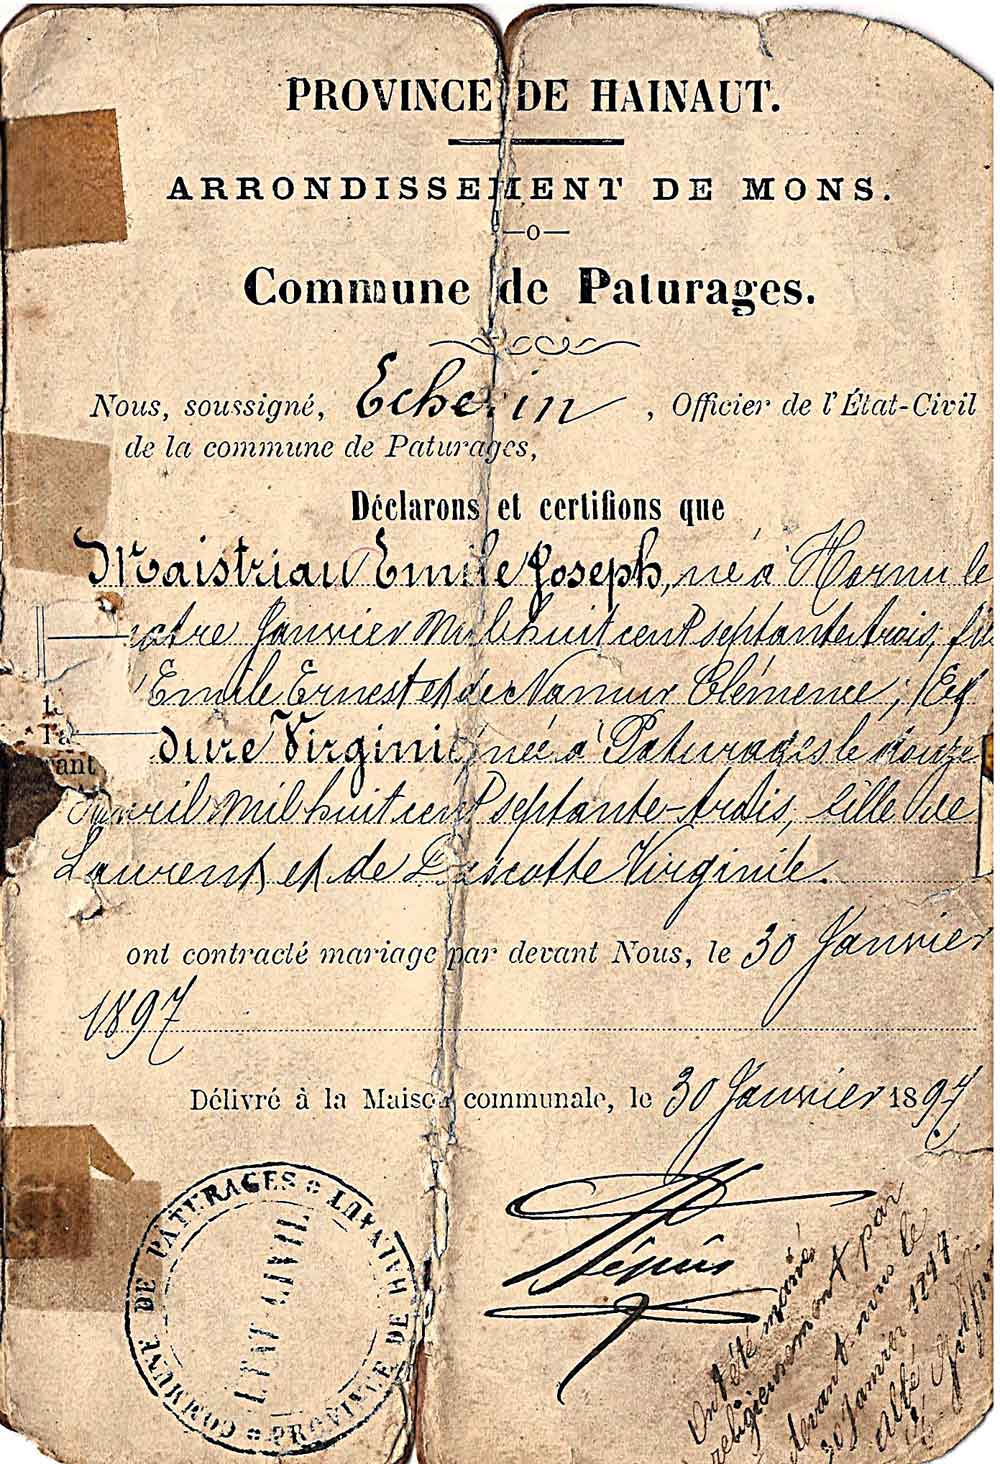 PROVINCE DE HAINAUT.
ARRONDISSEMENT DE MONS.
—o—
Commune de Paturages.
Nous, soussigné, Eche in , Officier de l'État-Civil
de la commune de Paturages,
Déclarons et certifions que
Maistriau Emile Joseph, né à Hornu le
atre Janvier mil huit cent septante trois, fils
Emile Ernest et de Namur Clémence; Et
dure Virginie, née à Paturages le douze
avril mil huit cent septante-trois, fille de
Laurent et de Descotte Virginie.
ont contracté mariage par devant Nous, le 30 Janvier
1897
Délivré à la Maison communale, le 30 Janvier 1897
COMMUNE DE PATURAGES * PROVINCE DE HAINAUT *
ETAT-CIVIL
Ont été mariés
religieusement par
devant nous le
30 Janvier 1897.